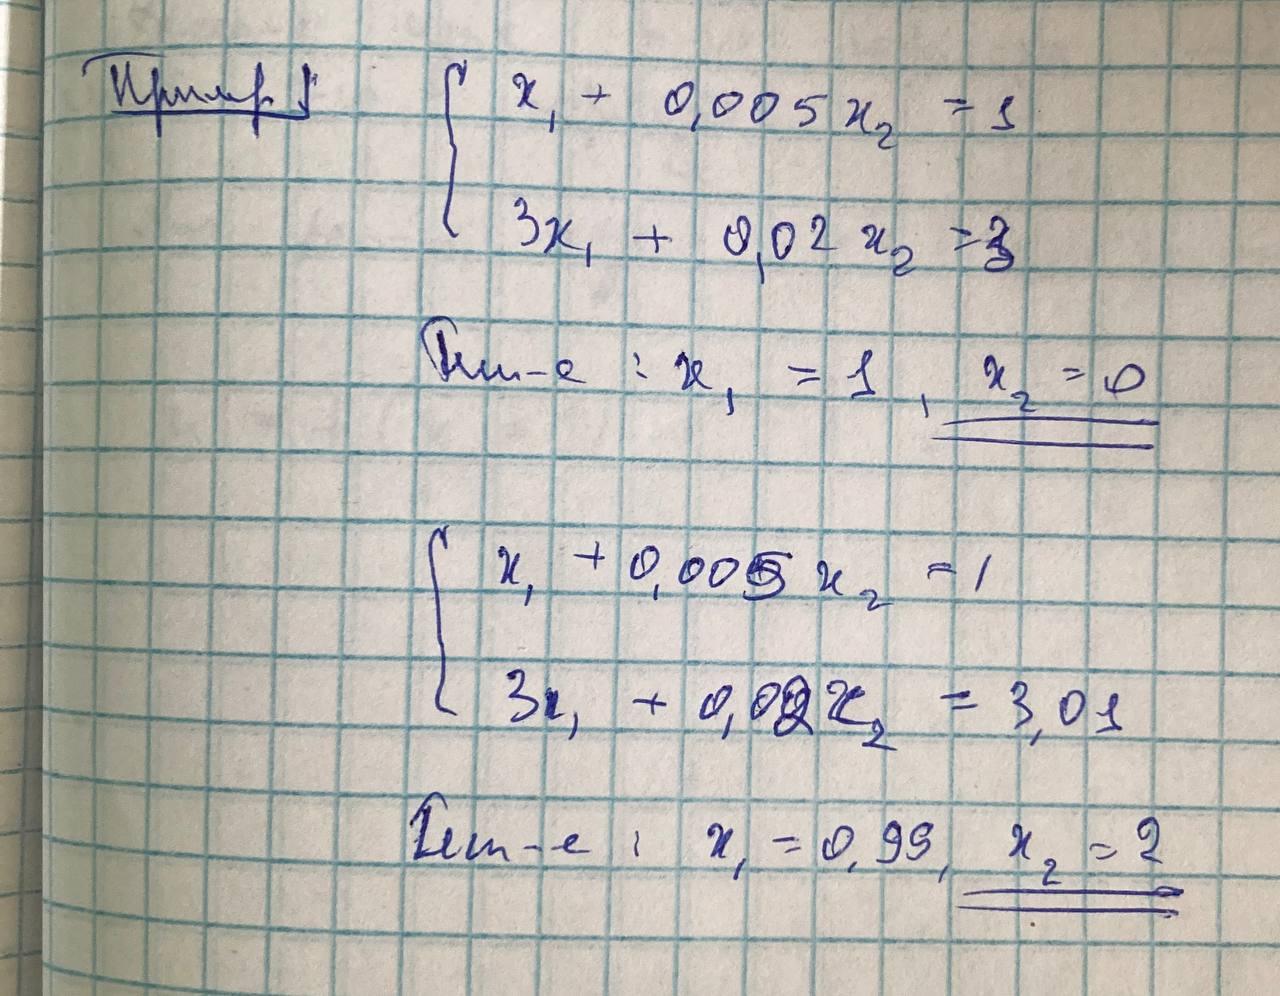 Пример 1 { x₁ + 0,005 x₂ = 1
3x₁ + 0,02 x₂ = 3
Реш-е : x₁ = 1, x₂ = 0
{ x₁ + 0,005 x₂ = 1
3x₁ + 0,02 x₂ = 3,01
Реш-е : x₁ = 0,99, x₂ = 2